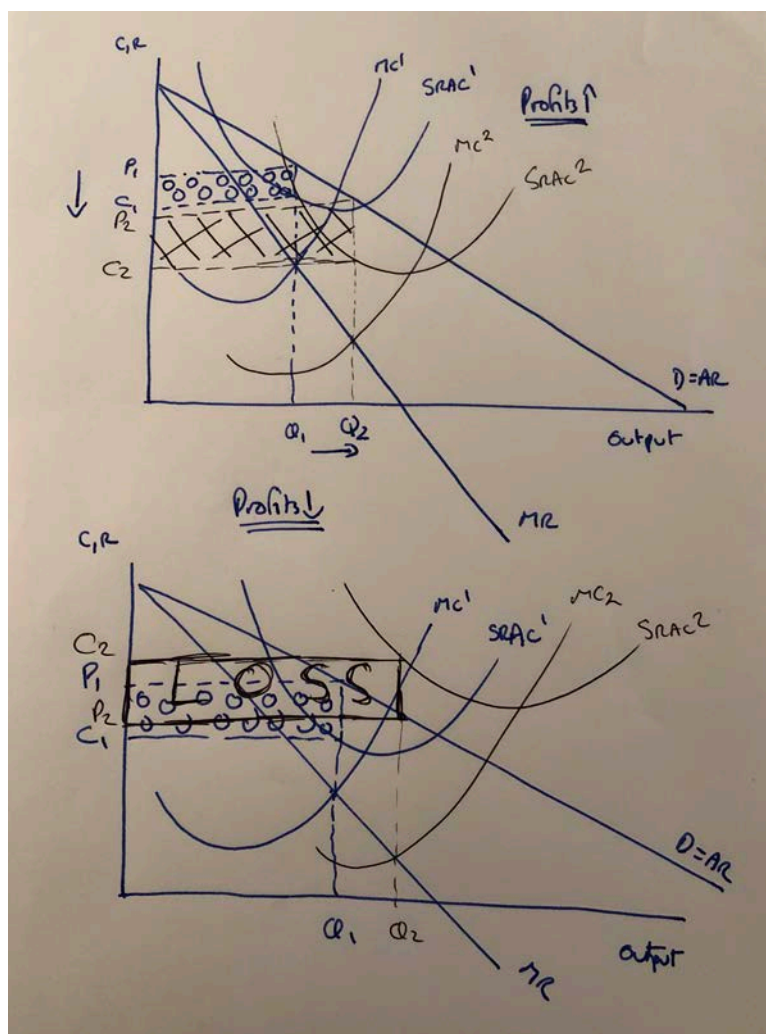 C,R
MC¹
SRAC¹
Profits↑
MC²
SRAC²
P₁
C₁
P₂
C₂
D=AR
Q₁
Q₂
Output
MR
Profits↓
C,R
MC¹
SRAC¹
MC₂
SRAC²
C₂
P₁
P₂
C₁
LOSS
D=AR
Q₁
Q₂
Output
MR